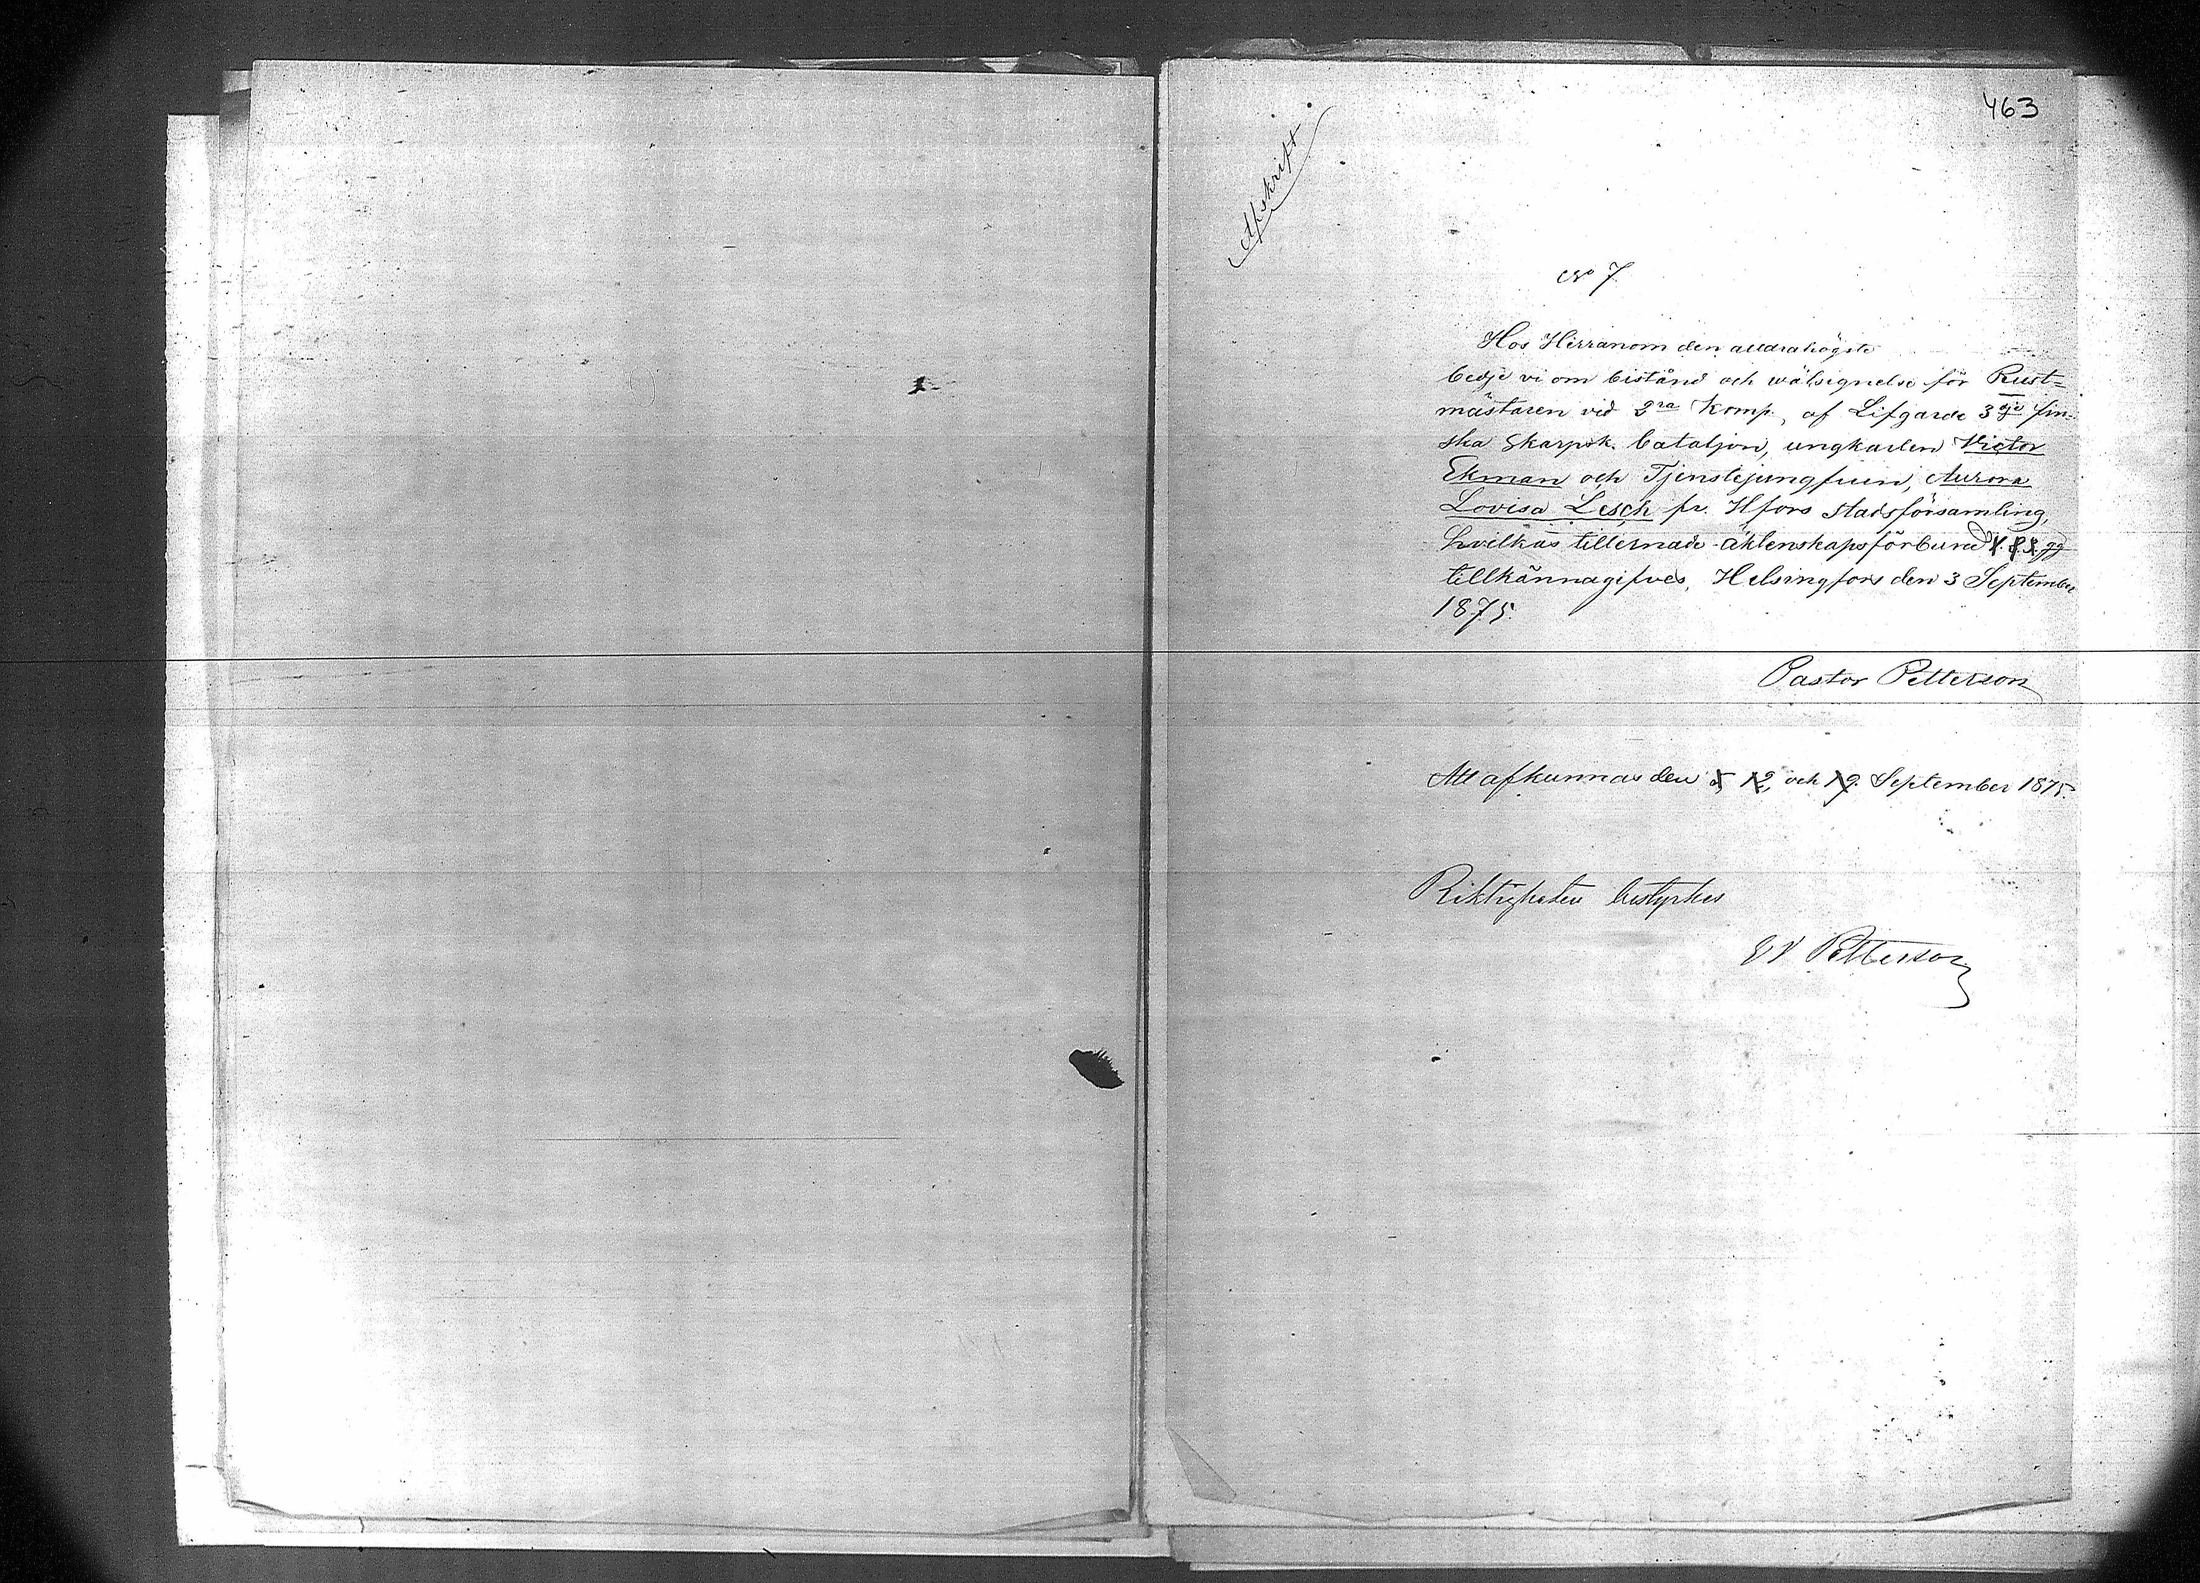 463
Afskrift
No 7.
Hos Herranom den alldrahögste
bedje vi om bistånd och wälsignelse för Rust=
mästaren vid 2ra Komp. af Lifgarde 3dje fin-
ska Skarpsk. bataljon, ungkarlen Victor
Ekman och Tjenstejungfrun, Aurora
Lovisa Lesch fr. Hfors stadsförsamling,
hvilkas tillernade äktenskapsförbund
tillkännagifves. Helsingfors den 3 September
1875.
Pastor Petterson
Att afkunnas den 5, 12, och 19. September 1875.
Riktigheten bestyrkes
Petterson